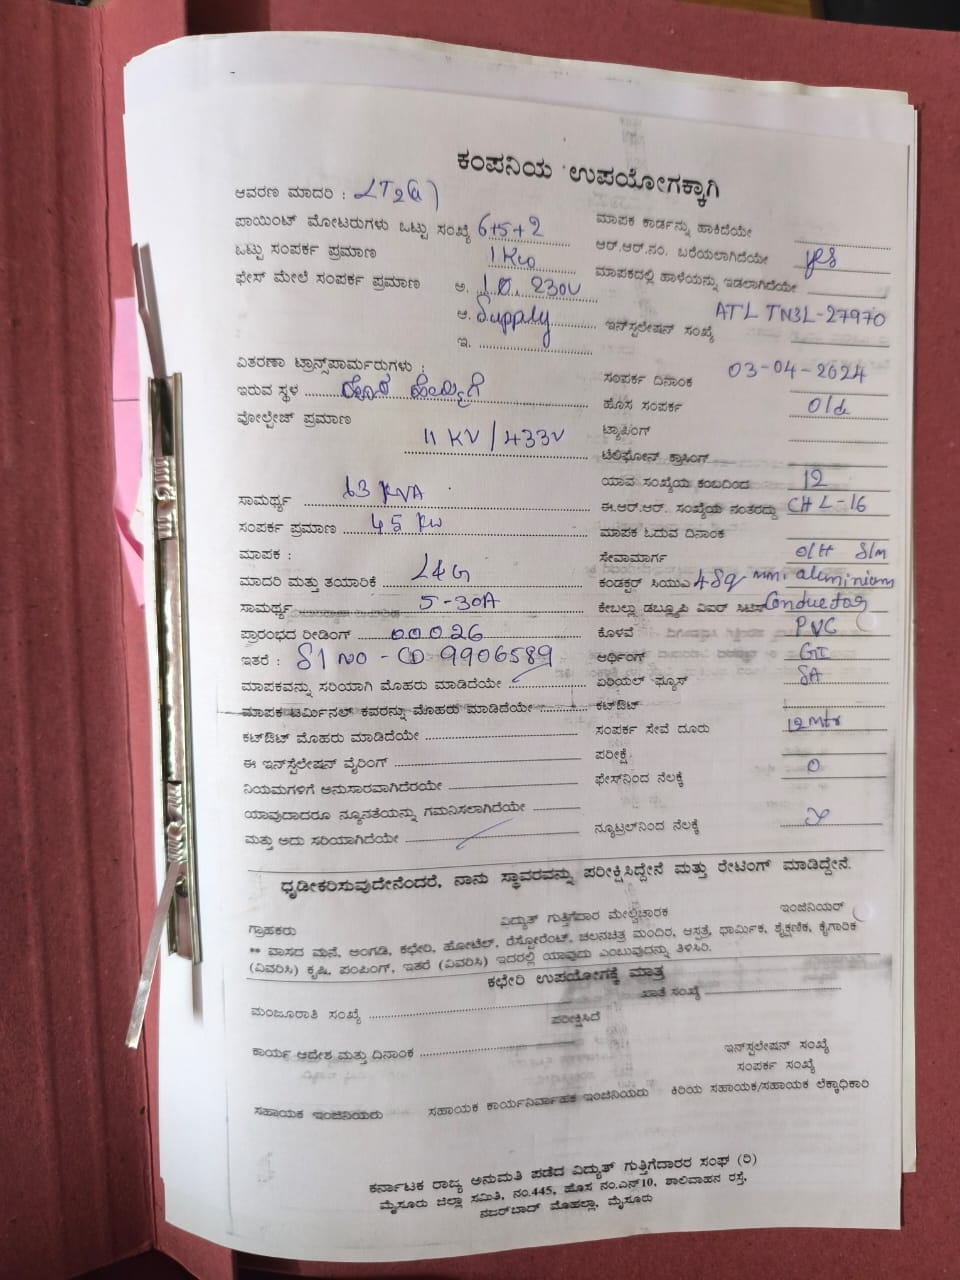 ಕಂಪನಿಯ ಉಪಯೋಗಕ್ಕಾಗಿ
ಆವರಣ ಮಾದರಿ : LT2(a)
ಪಾಯಿಂಟ್ ಮೋಟರುಗಳು ಒಟ್ಟು ಸಂಖ್ಯೆ 6+5+2
ಒಟ್ಟು ಸಂಪರ್ಕ ಪ್ರಮಾಣ 1Kw
ಫೇಸ್ ಮೇಲೆ ಸಂಪರ್ಕ ಪ್ರಮಾಣ ಅ. 1Ø. 230V
ಆ. Supply
ಇ.
ವಿತರಣಾ ಟ್ರಾನ್ಸ್‌ಪಾರ್ಮರುಗಳು :
ಇರುವ ಸ್ಥಳ
ವೋಲ್ಟೇಜ್ ಪ್ರಮಾಣ
11 KV / 433V
ಸಾಮರ್ಥ್ಯ 63 KVA
ಸಂಪರ್ಕ ಪ್ರಮಾಣ 45 Kw
ಮಾಪಕ :
ಮಾದರಿ ಮತ್ತು ತಯಾರಿಕೆ L&G
ಸಾಮರ್ಥ್ಯ 5-30A
ಪ್ರಾರಂಭದ ರೀಡಿಂಗ್ 00026
ಇತರೆ : Sl NO - CD 9906589
ಮಾಪಕವನ್ನು ಸರಿಯಾಗಿ ಮೊಹರು ಮಾಡಿದೆಯೇ
ಮಾಪಕ ಟರ್ಮಿನಲ್ ಕವರನ್ನು ಮೊಹರು ಮಾಡಿದೆಯೇ
ಕಟ್‌ಔಟ್ ಮೊಹರು ಮಾಡಿದೆಯೇ
ಈ ಇನ್‌ಸ್ಟೆಲೇಷನ್ ವೈರಿಂಗ್
ನಿಯಮಗಳಿಗೆ ಅನುಸಾರವಾಗಿದೆರಯೇ
ಯಾವುದಾದರೂ ನ್ಯೂನತೆಯನ್ನು ಗಮನಿಸಲಾಗಿದೆಯೇ
ಮತ್ತು ಅದು ಸರಿಯಾಗಿದೆಯೇ
ಮಾಪಕ ಕಾರ್ಡನ್ನು ಹಾಕಿದೆಯೇ
ಆರ್.ಆರ್.ನಂ. ಬರೆಯಲಾಗಿದೆಯೇ yes
ಮಾಪಕದಲ್ಲಿ ಹಾಳೆಯನ್ನು ಇಡಲಾಗಿದೆಯೇ
ಇನ್‌ಸ್ಟಲೇಷನ್ ಸಂಖ್ಯೆ ATL TN3L-27970
ಸಂಪರ್ಕ ದಿನಾಂಕ 03-04-2024
ಹೊಸ ಸಂಪರ್ಕ Old
ಟ್ಯಾಪಿಂಗ್
ಟೆಲಿಫೋನ್ ಕ್ರಾಸಿಂಗ್
ಯಾವ ಸಂಖ್ಯೆಯ ಕಂಬದಿಂದ 12
ಈ.ಆರ್.ಆರ್. ಸಂಖ್ಯೆಯ ನಂತರದ್ದು CHL-16
ಮಾಪಕ ಓದುವ ದಿನಾಂಕ
ಸೇವಾಮಾರ್ಗ O/H S/m
ಕಂಡಕ್ಟರ್ ಸಿಯುಎ 4sq mm. aluminium
ಕೇಬಲ್ಲು ಡಬ್ಲ್ಯೂಪಿ ವಿಐಆರ್ Conductor
ಕೊಳವೆ PVC
ಆರ್ಥಿಂಗ್ GI
ಏರಿಯಲ್ ಫ್ಯೂಸ್ 5A
ಕಟ್‌ಔಟ್
ಸಂಪರ್ಕ ಸೇವೆ ದೂರು 12mtr
ಪರೀಕ್ಷೆ
ಫೇಸ್‌ನಿಂದ ನೆಲಕ್ಕೆ 0
ನ್ಯೂಟ್ರಲ್‌ನಿಂದ ನೆಲಕ್ಕೆ
ಧೃಡೀಕರಿಸುವುದೇನೆಂದರೆ, ನಾನು ಸ್ಥಾವರವನ್ನು ಪರೀಕ್ಷಿಸಿದ್ದೇನೆ ಮತ್ತು ರೇಟಿಂಗ್ ಮಾಡಿದ್ದೇನೆ.
ಗ್ರಾಹಕರು ವಿದ್ಯುತ್ ಗುತ್ತಿಗೆದಾರ ಮೇಲ್ವಿಚಾರಕ ಇಂಜಿನಿಯರ್
** ವಾಸದ ಮನೆ, ಅಂಗಡಿ, ಕಛೇರಿ, ಹೋಟೆಲ್, ರೆಸ್ಟೋರೆಂಟ್, ಚಲನಚಿತ್ರ ಮಂದಿರ, ಆಸ್ಪತ್ರೆ, ಧಾರ್ಮಿಕ, ಶೈಕ್ಷಣಿಕ, ಕೈಗಾರಿಕೆ
(ವಿವರಿಸಿ) ಕೃಷಿ, ಪಂಪಿಂಗ್, ಇತರೆ (ವಿವರಿಸಿ) ಇದರಲ್ಲಿ ಯಾವುದು ಎಂಬುವುದನ್ನು ತಿಳಿಸಿರಿ.
ಕಛೇರಿ ಉಪಯೋಗಕ್ಕೆ ಮಾತ್ರ
ಮಂಜೂರಾತಿ ಸಂಖ್ಯೆ ಖಾತೆ ಸಂಖ್ಯೆ
ಪರೀಕ್ಷಿಸಿದೆ
ಕಾರ್ಯ ಆದೇಶ ಮತ್ತು ದಿನಾಂಕ ಇನ್‌ಸ್ಟಲೇಷನ್ ಸಂಖ್ಯೆ
ಸಂಪರ್ಕ ಸಂಖ್ಯೆ
ಸಹಾಯಕ ಇಂಜಿನಿಯರು ಸಹಾಯಕ ಕಾರ್ಯನಿರ್ವಾಹಕ ಇಂಜಿನಿಯರು ಕಿರಿಯ ಸಹಾಯಕ/ಸಹಾಯಕ ಲೆಕ್ಕಾಧಿಕಾರಿ
ಕರ್ನಾಟಕ ರಾಜ್ಯ ಅನುಮತಿ ಪಡೆದ ವಿದ್ಯುತ್ ಗುತ್ತಿಗೆದಾರರ ಸಂಘ (ರಿ)
ಮೈಸೂರು ಜಿಲ್ಲಾ ಸಮಿತಿ, ನಂ.445, ಹೊಸ ನಂ.ಎನ್10, ಶಾಲಿವಾಹನ ರಸ್ತೆ,
ನಜರ್‌ಬಾದ್ ಮೊಹಲ್ಲಾ, ಮೈಸೂರು